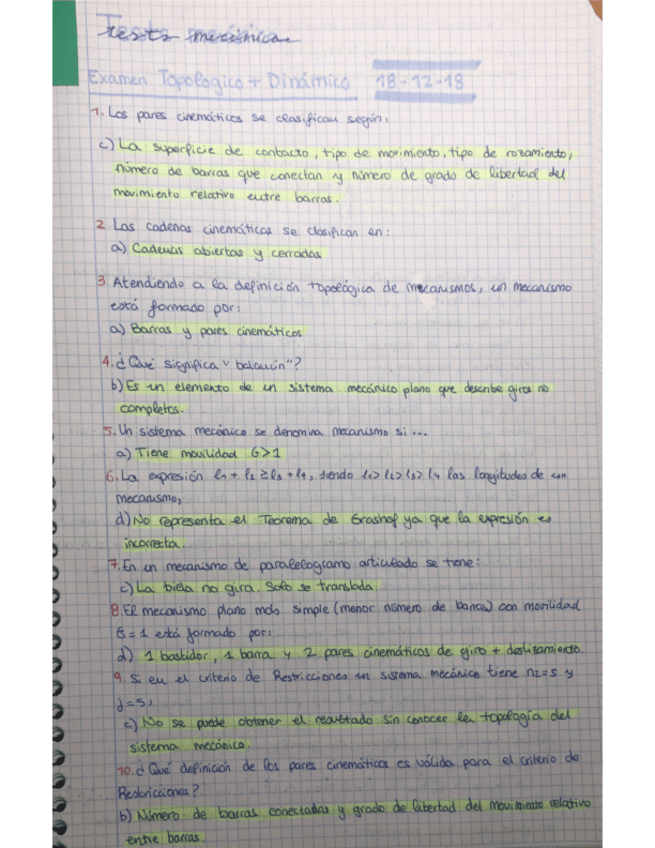 Tests mecánica
Examen Topológico + Dinámico 18-12-18
1. Los pares cinemáticos se clasifican según:
c) La superficie de contacto, tipo de movimiento, tipo de rozamiento,
número de barras que conectan y número de grado de libertad del
movimiento relativo entre barras.
2. Las cadenas cinemáticas se clasifican en:
a) Cadenas abiertas y cerradas
3. Atendiendo a la definición topológica de mecanismos, un mecanismo
está formado por:
a) Barras y pares cinemáticos
4. ¿Qué significa "balancín"?
b) Es un elemento de un sistema mecánico plano que describe giros no
completos.
5. Un sistema mecánico se denomina mecanismo si ...
a) Tiene movilidad G>1
6. La expresión l1 + l2 ≥ l3 + l4, siendo l1> l2> l3> l4 las longitudes de un
mecanismo,
d) No representa el Teorema de Grashof ya que la expresión es
incorrecta.
7. En un mecanismo de paralelogramo articulado se tiene:
c) La biela no gira. Solo se translada.
8. El mecanismo plano más simple (menor número de barras) con movilidad
G = 1 está formado por:
d) 1 bastidor, 1 barra y 2 pares cinemáticos de giro + deslizamiento.
9. Si en el criterio de Restricciones un sistema mecánico tiene n2=5 y
j=5,
c) No se puede obtener el resultado sin conocer la topología del
sistema mecánico.
10. ¿Qué definición de los pares cinemáticos es válida para el criterio de
Restricciones?
b) Número de barras conectadas y grado de libertad del movimiento relativo
entre barras.